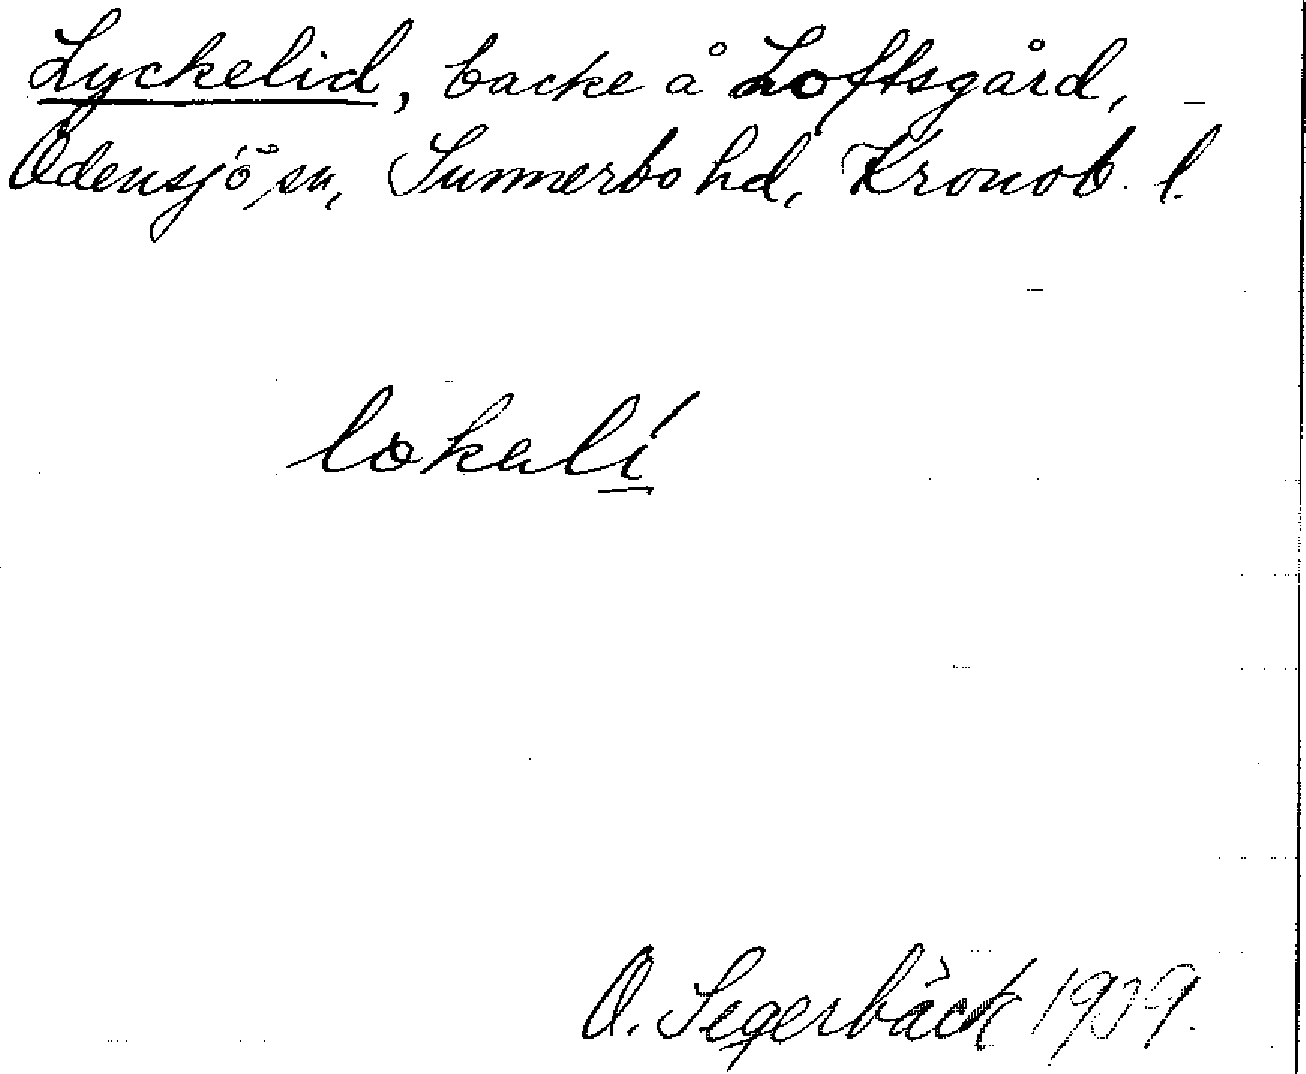 Lyckelid, backe å Loftsgård,
Odensjö sn, Sunnerbo hd, Kronob. l.
O. Segerbäck 1939.